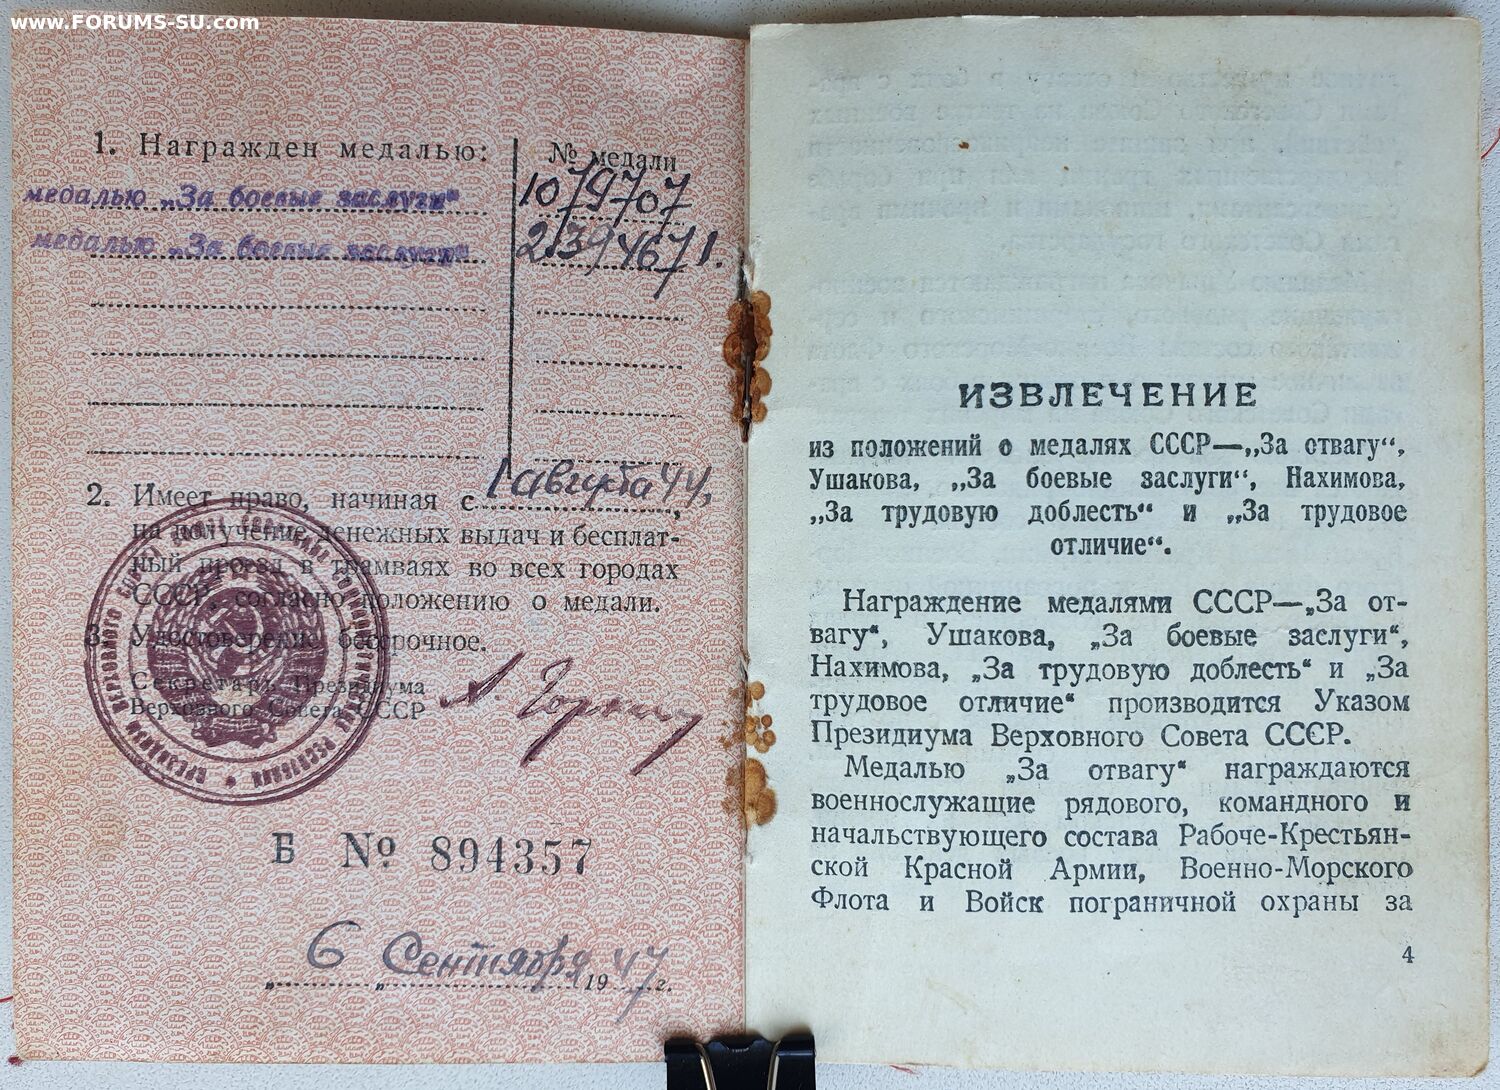 www.FORUMS-SU.com
1. Награжден медалью:
№ медали
медалью „За боевые заслуги“
1079707
медалью „За боевые заслуги“
2394671.
2. Имеет право, начиная с 1 августа 44,
на получение денежных выдач и бесплат-
ный проезд в трамваях во всех городах
СССР, согласно положению о медали.
3. Удостоверение бессрочное.
Секретарь Президиума
Верховного Совета СССР
А. Горкин
Б № 894357
„ 6 “ Сентября 1947 г.
ИЗВЛЕЧЕНИЕ
из положений о медалях СССР—„За отвагу“,
Ушакова, „За боевые заслуги“, Нахимова,
„За трудовую доблесть“ и „За трудовое
отличие“.
Награждение медалями СССР—„За от-
вагу“, Ушакова, „За боевые заслуги“,
Нахимова, „За трудовую доблесть“ и „За
трудовое отличие“ производится Указом
Президиума Верховного Совета СССР.
Медалью „За отвагу“ награждаются
военнослужащие рядового, командного и
начальствующего состава Рабоче-Крестьян-
ской Красной Армии, Военно-Морского
Флота и Войск пограничной охраны за
4